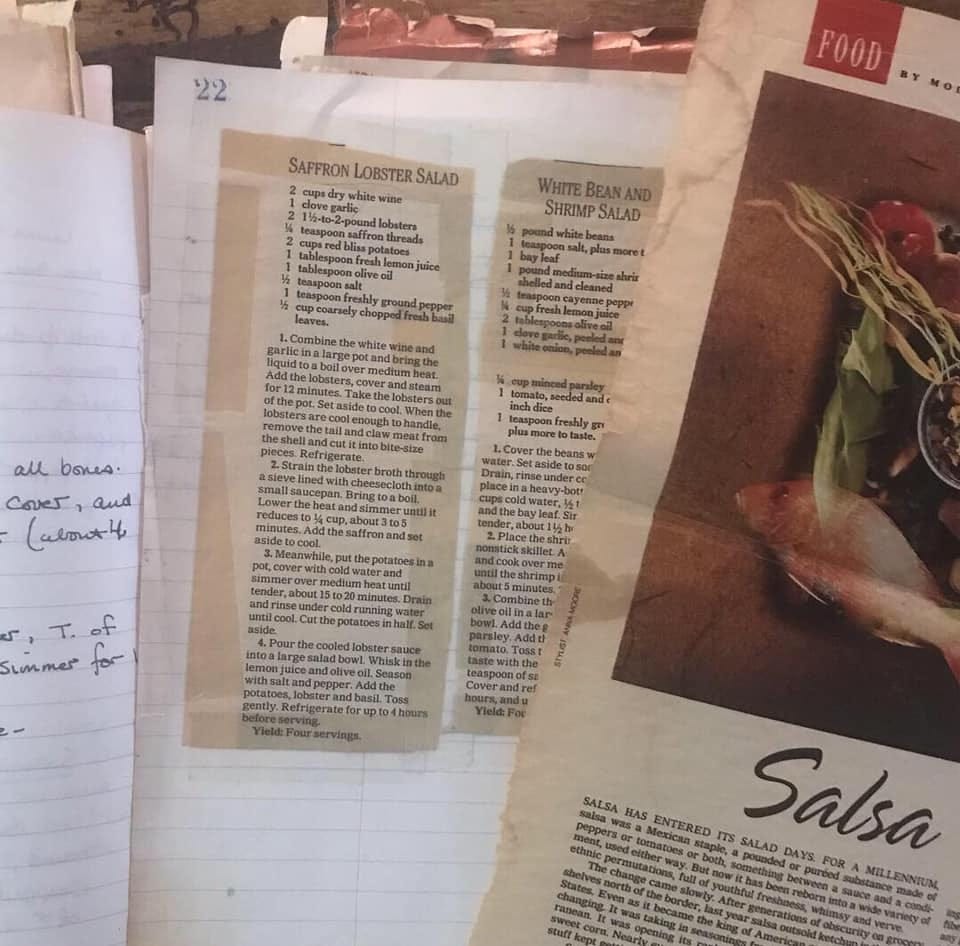 all bones.
cover, and
(about 4
T. of
simmer for
22
SAFFRON LOBSTER SALAD
2 cups dry white wine
1 clove garlic
2 1½-to-2-pound lobsters
¼ teaspoon saffron threads
2 cups red bliss potatoes
1 tablespoon fresh lemon juice
1 tablespoon olive oil
½ teaspoon salt
1 teaspoon freshly ground pepper
½ cup coarsely chopped fresh basil
leaves.
1. Combine the white wine and
garlic in a large pot and bring the
liquid to a boil over medium heat.
Add the lobsters, cover and steam
for 12 minutes. Take the lobsters out
of the pot. Set aside to cool. When the
lobsters are cool enough to handle,
remove the tail and claw meat from
the shell and cut it into bite-size
pieces. Refrigerate.
2. Strain the lobster broth through
a sieve lined with cheesecloth into a
small saucepan. Bring to a boil.
Lower the heat and simmer until it
reduces to ¼ cup, about 3 to 5
minutes. Add the saffron and set
aside to cool.
3. Meanwhile, put the potatoes in a
pot, cover with cold water and
simmer over medium heat until
tender, about 15 to 20 minutes. Drain
and rinse under cold running water
until cool. Cut the potatoes in half. Set
aside.
4. Pour the cooled lobster sauce
into a large salad bowl. Whisk in the
lemon juice and olive oil. Season
with salt and pepper. Add the
potatoes, lobster and basil. Toss
gently. Refrigerate for up to 4 hours
before serving.
Yield: Four servings.
WHITE BEAN AND
SHRIMP SALAD
½ pound white beans
1 teaspoon salt, plus more t
1 bay leaf
1 pound medium-size shrir
shelled and cleaned
½ teaspoon cayenne peppe
¼ cup fresh lemon juice
2 tablespoons olive oil
1 clove garlic, peeled and
1 white onion, peeled an
¼ cup minced parsley
1 tomato, seeded and c
inch dice
1 teaspoon freshly gro
plus more to taste.
1. Cover the beans w
water. Set aside to soa
Drain, rinse under co
place in a heavy-bott
cups cold water, ½ t
and the bay leaf. Sim
tender, about 1½ ho
2. Place the shrin
nonstick skillet. A
and cook over me
until the shrimp i
about 5 minutes.
3. Combine the
olive oil in a lar
bowl. Add the g
parsley. Add th
tomato. Toss t
taste with the
teaspoon of sa
Cover and ref
hours, and u
Yield: Fou
STYLIST: ANNA MOORE
FOOD
BY MOL
Salsa
SALSA HAS ENTERED ITS SALAD DAYS. FOR A MILLENNIUM,
salsa was a Mexican staple, a pounded or puréed substance made of
peppers or tomatoes or both, something between a sauce and a condi-
ment, used either way. But now it has been reborn into a wide variety of
ethnic permutations, full of youthful freshness, whimsy and verve.
The change came slowly. After generations of obscurity on
shelves north of the border, last year salsa outsold ketchup
States. Even as it became the king of
changing. It was taking in seasonings
ranean. It was opening its
sweet corn. Nearly
stuff kept